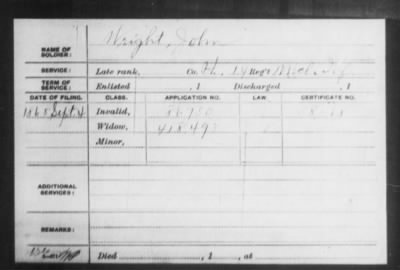 NAME OF SOLDIER: Wright, John
SERVICE: Late rank, Co. H, 19 Reg't Mich. Inf.
TERM OF SERVICE: Enlisted , 1 Discharged , 1
DATE OF FILING. CLASS. APPLICATION NO. LAW. CERTIFICATE NO.
1865 Sept. 4 Invalid,
Widow, 418.497
Minor,
ADDITIONAL SERVICES:
REMARKS:
Died , 1 , at